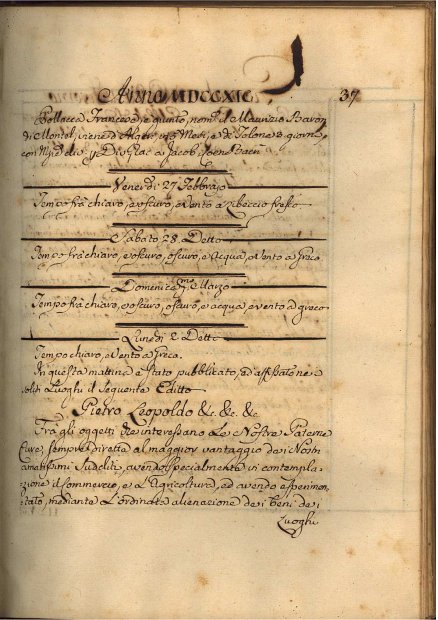 Anno MDCCXIC
37
Pollacca Francese, e quinto, nom.ª il Maurizio Baron
di Montol, viene d'Alger in Mesi, e de Tolone 8. giorni,
con
Venerdì 27 Febbrajo
Tempo frà chiaro, e oscuro, e vento a Libeccio fresco
Sabato 28 Detto
Tempo frà chiaro, e oscuro, oscuro, e acqua, e vento a Greco
Domenica p.mo Marzo
Tempo frà chiaro, e oscuro, oscuro, e acqua, e vento a greco
Lunedì 2 Detto
Tempo chiaro, e vento a Greco.
In questa mattina è stato pubblicato, ed affisso ne i
soliti Luoghi il seguente Editto
Pietro Leopoldo &c. &c. &c
Tra gli oggetti che interessano le Nostre Paterne
Cure, sempre dirette al maggior vantaggio dei Nostri
amatissimi Sudditi, avendo specialmente in contempla-
zione il Commercio, e l'Agricoltura, ed avendo esperimen-
tato, mediante l'ordinata alienazione dei beni dei
Luoghi